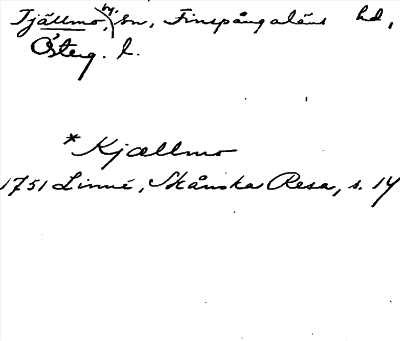 Tjällmo, sn, Finspångaläns hd,
Österg. l.
*Kjællmo
1751 Linné, Skånska Resa, s. 14